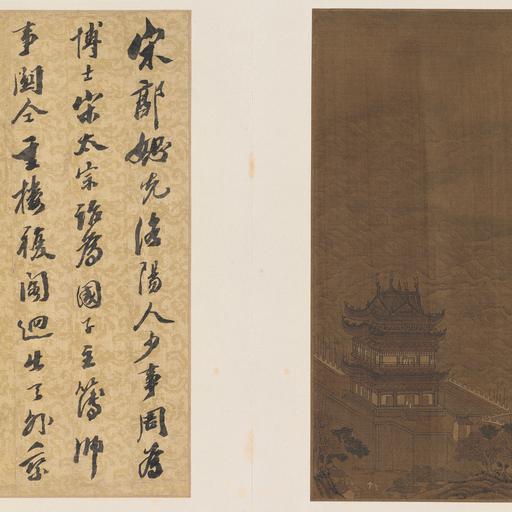 宋郭恕先洛陽人少事周為
博士宋太宗詔為國子主簿師
事關仝重樓複閣迥出天外